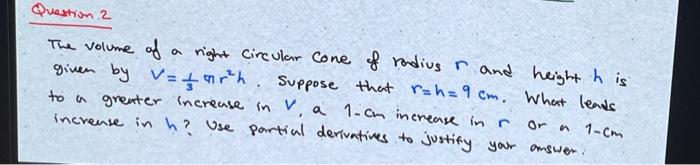 Question 2
The volume of a right circular cone of radius r and height h is
given by V = 1/3 π r²h. Suppose that r=h=9 cm. What leads
to a greater increase in V, a 1-cm increase in r or a 1-cm
increase in h? Use partial derivatives to justify your answer.